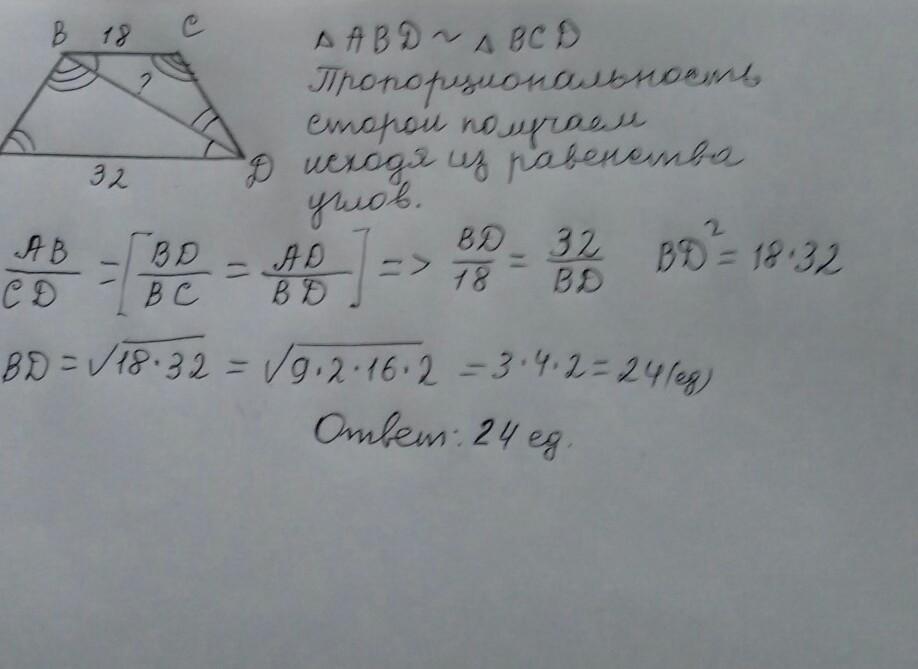 B 18 C
?
32 D
△ABD ~ △BCD
Пропорциональность
сторон получаем
исходя из равенства
углов.
AB/CD = [BD/BC = AD/BD] => BD/18 = 32/BD BD² = 18·32
BD = √18·32 = √9·2·16·2 = 3·4·2 = 24(ед)
Ответ: 24 ед.